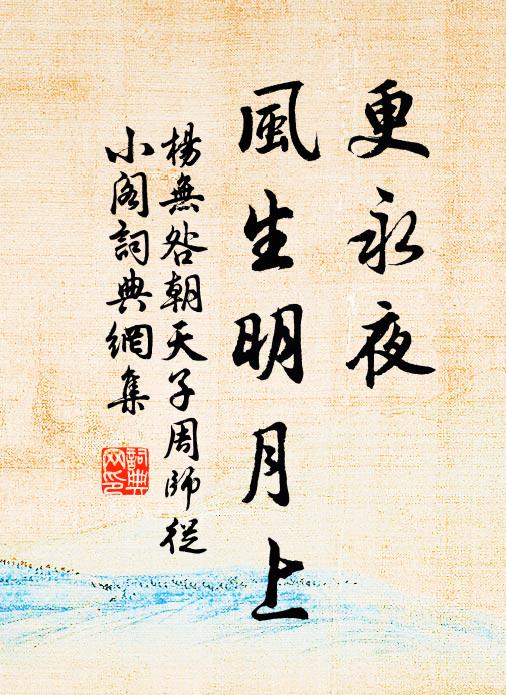 更永夜
風生明月上
楊無咎朝天子周師從
小閣詞典網集
詞典
网印